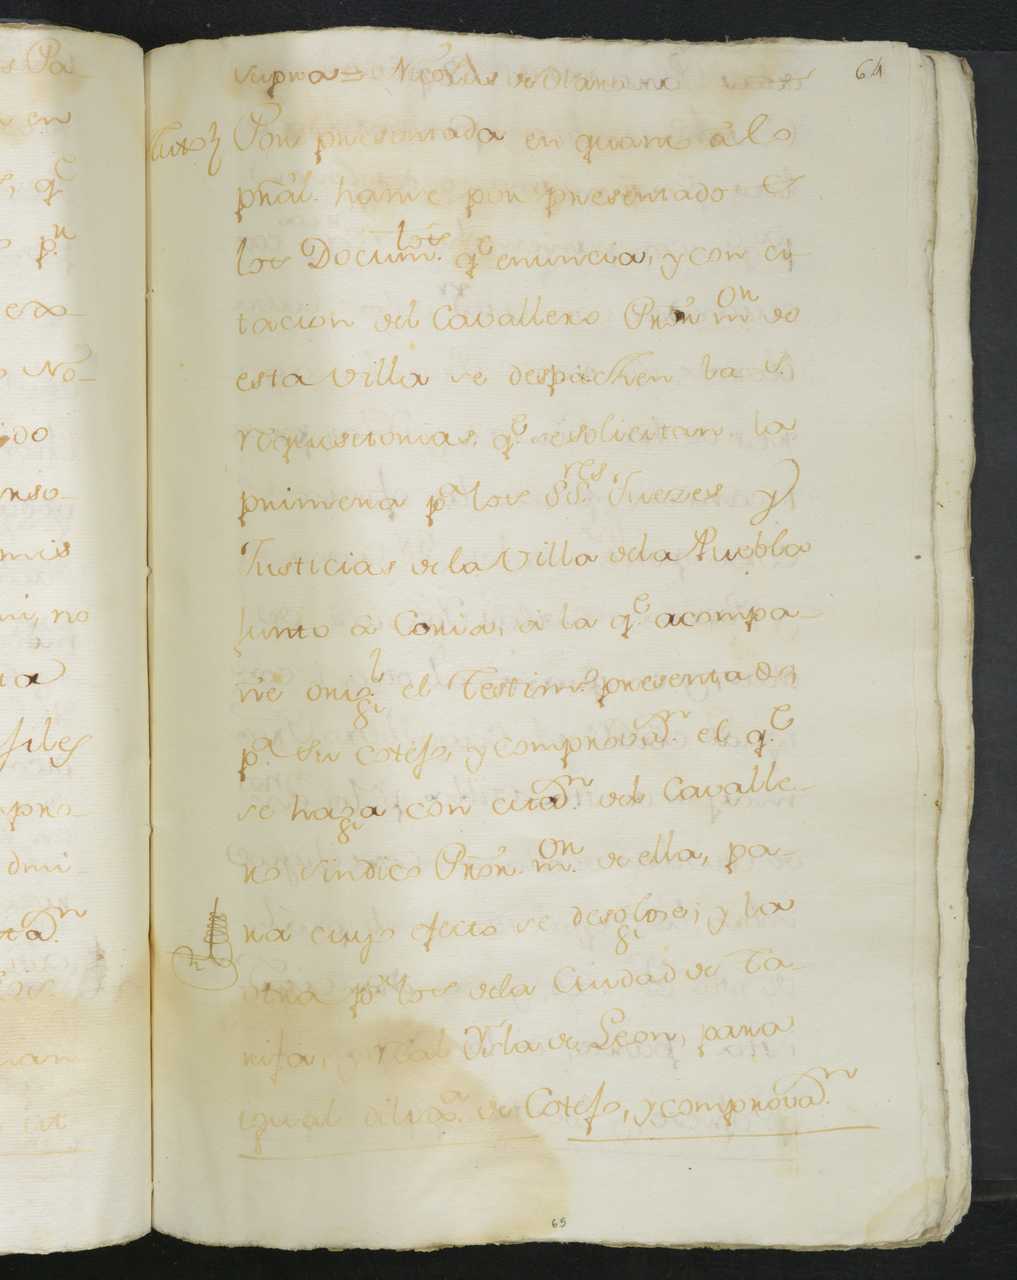 64
supra = Nicolas de Olanara
Auto Por presentada en quanto â lo
prãl. hanse por presentado
los Documtos. qe enuncia, y con ci-
tacion del Cavallero Prõr mon de
esta Villa se despachen las
requisitorias qe se solicitan la
primera pa los SSres Juezes y
Justicias de la Villa dela Puebla
junto â Coria, â la qe acompa-
ñe origl el Testimo presentado,
pa su cotejo, y comprovan. el qe
se haga con citan del Cavalle-
ro Sindico Prõr mon de ella, pa-
ra cuyo efecto se desglose; y la
otra pa los dela Ciudad de Ta-
rifa, y Real Ysla de Leon, para
igual diliga de Cotejo, y comprovan.
65